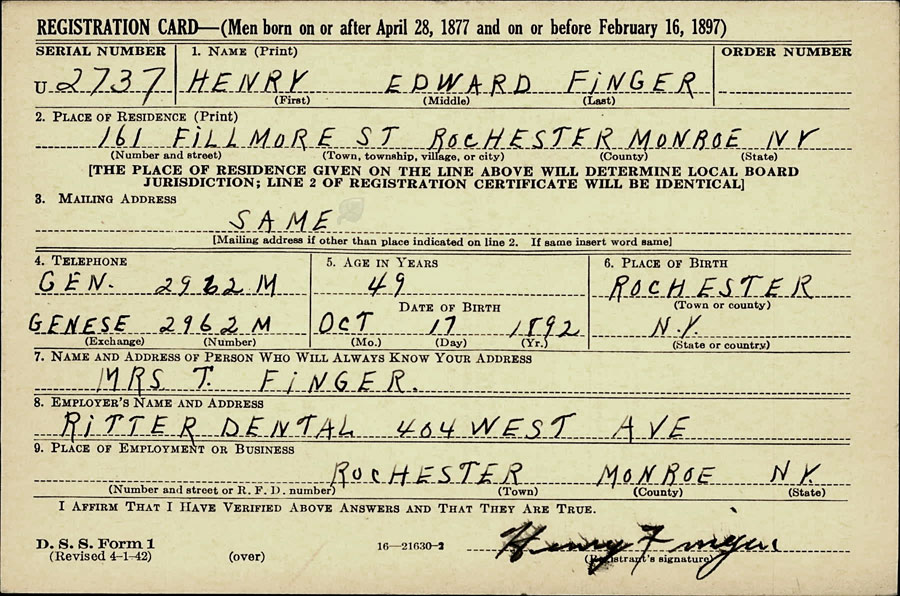 REGISTRATION CARD—(Men born on or after April 28, 1877 and on or before February 16, 1897)
SERIAL NUMBER 1. NAME (Print) ORDER NUMBER
U 2737 HENRY EDWARD FiNGER
(First) (Middle) (Last)
2. PLACE OF RESIDENCE (Print)
161 FiLLMORE ST ROCHESTER MONROE NY
(Number and street) (Town, township, village, or city) (County) (State)
[THE PLACE OF RESIDENCE GIVEN ON THE LINE ABOVE WILL DETERMINE LOCAL BOARD
JURISDICTION; LINE 2 OF REGISTRATION CERTIFICATE WILL BE IDENTICAL]
3. MAILING ADDRESS
SAME
[Mailing address if other than place indicated on line 2. If same insert word same]
4. TELEPHONE 5. AGE IN YEARS 6. PLACE OF BIRTH
GEN. 2962 M 49 ROCHESTER
DATE OF BIRTH (Town or county)
GENESE 2962 M OCT 17 1892 N.Y.
(Exchange) (Number) (Mo.) (Day) (Yr.) (State or country)
7. NAME AND ADDRESS OF PERSON WHO WILL ALWAYS KNOW YOUR ADDRESS
MRS T. FiNGER.
8. EMPLOYER'S NAME AND ADDRESS
RiTTER DENTAL 404 WEST AVE
9. PLACE OF EMPLOYMENT OR BUSINESS
ROCHESTER MONROE NY.
(Number and street or R. F. D. number) (Town) (County) (State)
I AFFIRM THAT I HAVE VERIFIED ABOVE ANSWERS AND THAT THEY ARE TRUE.
D. S. S. Form 1
(Revised 4-1-42) (over) 16—21630-2 Henry Finger
(Registrant's signature)